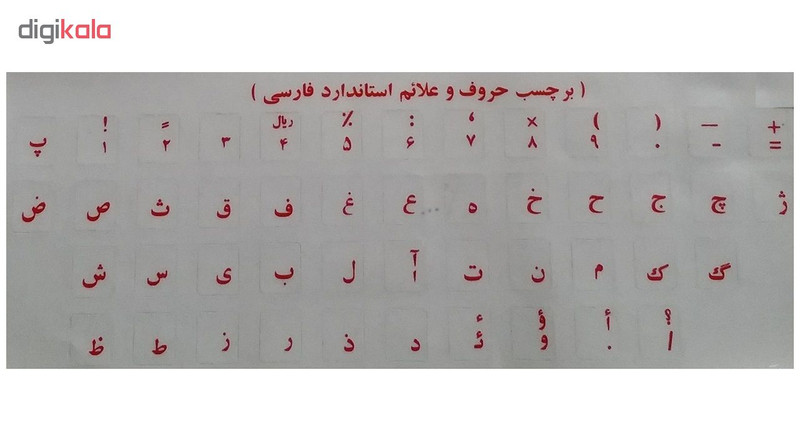 digikala
( برچسب حروف و علائم استاندارد فارسی )
! = ریال ٪ : ، × ( ) — +
پ ۱ ۲ ۳ ۴ ۵ ۶ ۷ ۸ ۹ ۰ - =
ض ص ث ق ف غ ع ه خ ح ج چ ژ
آ
ش س ی ب ل ا ت ن م ك گ
ء ؤ أ ؟
ظ ط ز ر ذ د ئ و . /